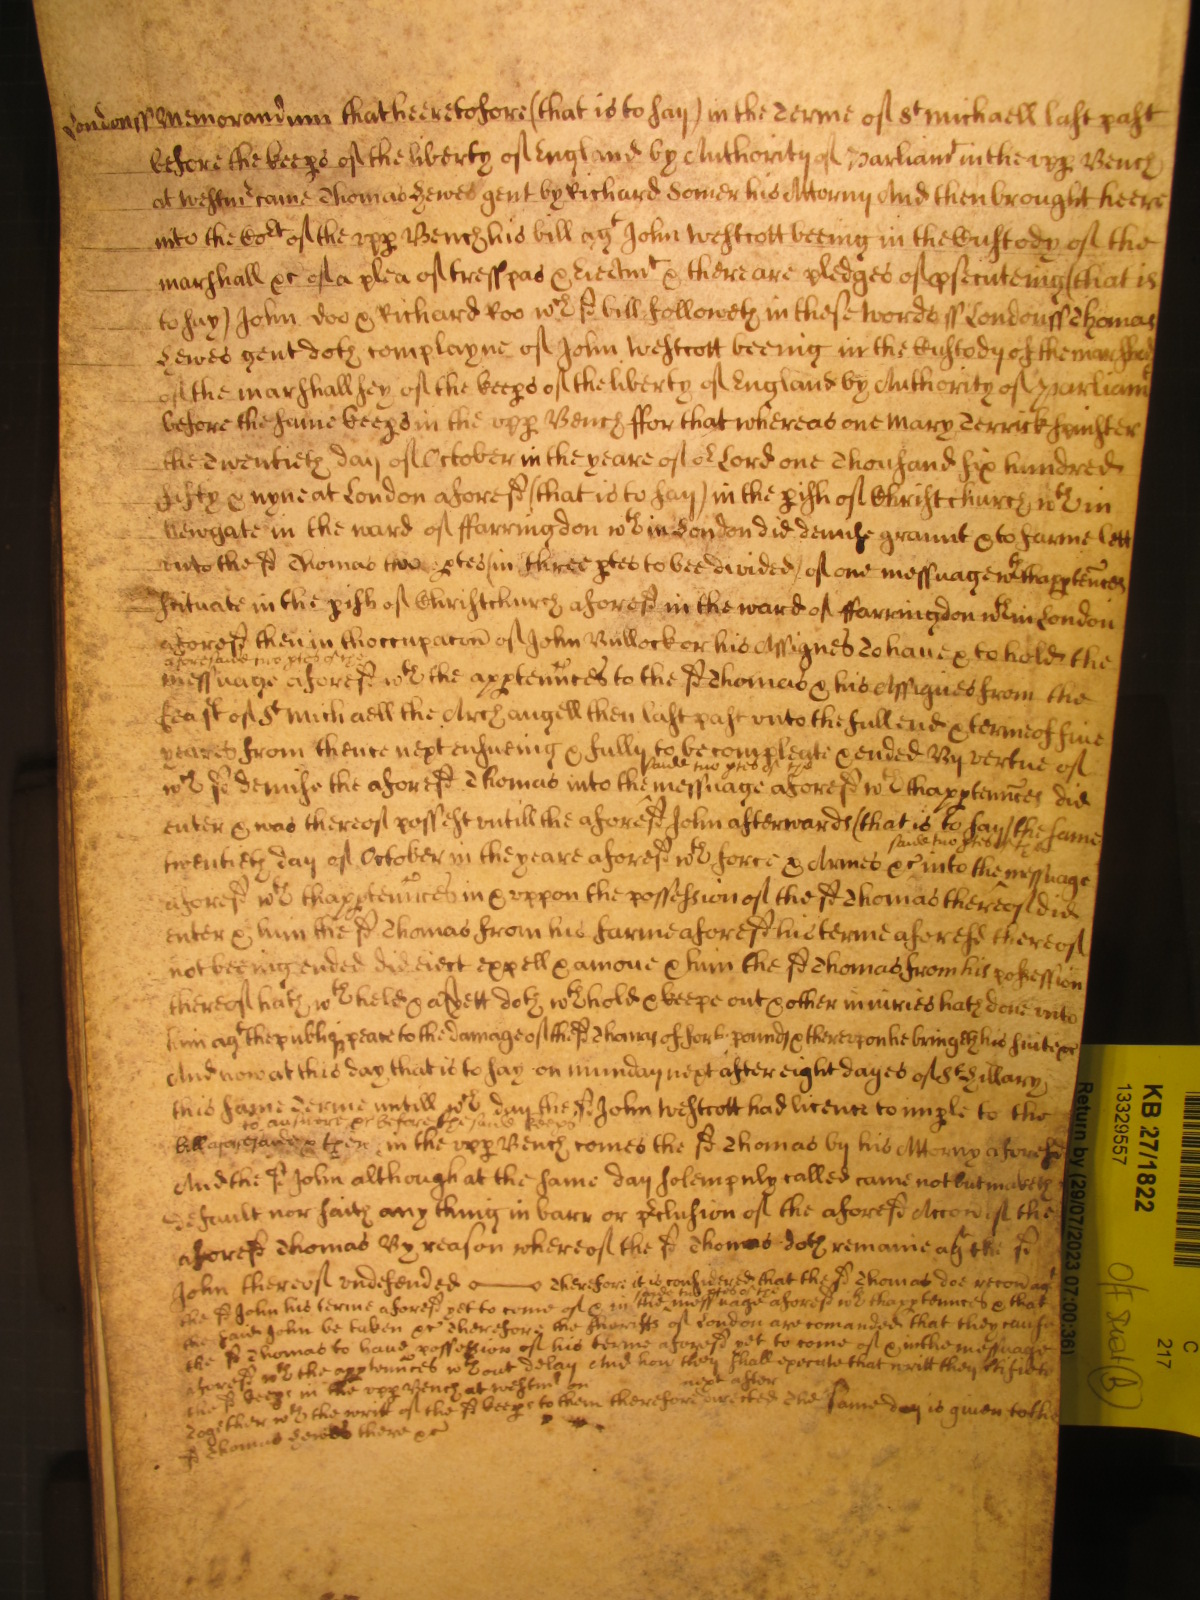 Londonss Memorandum that heeretofore (that is to say) in the Terme of St Michaell last past
before the keeps of the liberty of England by Authority of Parliamt in the vpp Bench
at Westmr came Thomas Hewes gent by Richard Somer his Attorny And then brought heere
into the Cort of the vpp Bench his bill agt John Westcott beeing in the Custody of the
marshall &c of a plea of tresspas & eiectmt & there are pledges of psecuteing (that is
to say) John Doo & Richard Roo wch sd bill followeth in these words ss Londonss Thomas
Hewes gent doth complayne of John Westcott beeing in the Custody of the marshall
of the marshallsey of the keeps of the liberty of England by Authority of Parliamt
before the same keeps in the vpp Bench ffor that whereas one Mary Derrick spinster
the Twentieth day of October in the yeare of or Lord one Thousand six hundred
fifty & nyne at London aforesd (that is to say) in the pish of Christchurch wthin
Newgate in the ward of ffarringdon wthin London did demise graunt & to farme lett
vnto the sd Thomas two ptes (in three ptes to bee divided) of one messuage wth thapptennces
scituate in the pish of Christchurch aforesd in the ward of ffarringdon wthin London
aforesd then in thoccupacon of John Bullock or his Assignes To haue & to hold the
aforesaide two ptes of the
messuage aforesd wth the apptennces to the sd Thomas & his Assignes from the
feast of St Michaell the Archangell then last past vnto the full end & terme of fiue
yeares from thence next ensueing & fully to be compleate & ended By vertue of
saide two ptes of the
wch sd demise the aforesd Thomas into the messuage aforesd wth thapptennces did
enter & was thereof possest vntill the aforesd John afterwards (that is to say) the same
saide two ptes of the
twentieth day of October in the yeare aforesd wth force & Armes &c into the messuage
aforesd wth thapptennces in & vppon the possession of the sd Thomas thereof did
enter & him the sd Thomas from his farme aforesd his terme aforesd thereof
not beeing ended did eiect expell & amoue & him the sd Thomas from his possession
thereof hath wthheld & as yett doth wthhold & keepe out & other iniuries hath done vnto
him agt the publiq peace to the damage of the sd Thomas of forty pounds & therevpon he bringeth his suite &c
And now at this day that is to say on munday next after eight dayes of St Hillary
this same Terme vntill wch day the sd John Westcott had licence to imple to the
to answere &c before the said keeps
bill aforesaide & then in the vpp Bench comes the sd Thomas by his Attorny aforesd
And the sd John although at the same day solempnly called came not but maketh
default nor saith any thing in barr or pclusion of the aforesd Accon of the
aforesd Thomas By reason whereof the sd Thomas doth remaine agt the sd
John thereof vndefended Therefore it is considered that the sd Thomas doe recou agt
saide two ptes of the
the sd John his terme aforesd yet to come of & in the messuage aforesd wth thapptennces & that
the said John be taken &c Therefore the sheriffs of London are comanded that they cause
the sd Thomas to haue possession of his terme aforesd yet to come of & in the messuage
aforesd wth the apptennces wthout delay And how they shall execute that writt they certifie to
the sd keeps in the vpp Bench at Westmr on next after
Together wth the writt of the sd keeps to them therefore directed The same day is giuen to the
sd Thomas Hewes there &c
KB 27/1822
13329557
Return by (29/07/2023 07:00:36)
C
217